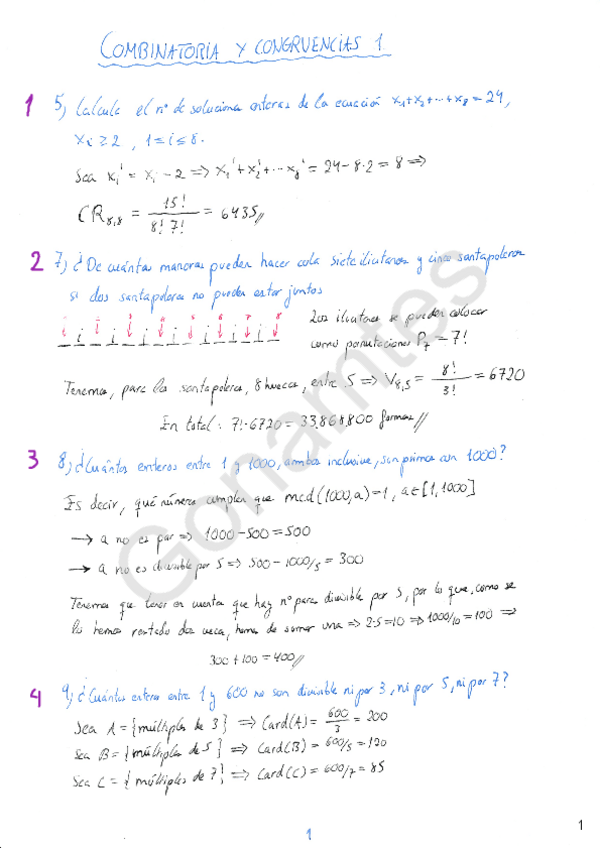 COMBINATORIA Y CONGRUENCIAS 1
1 5) Calcula el nº de soluciones enteras de la ecuación x1+x2+...+x8=24,
xi≥2, 1≤i≤8.
Sea xi' = xi-2 => x1'+x2'+...x8' = 24-8·2=8 =>
CR8,8 = 15!/8! 7! = 6435//
2 7) ¿De cuántas maneras pueden hacer cola siete ilicitanos y cinco santapoleros
si dos santapoleros no pueden estar juntos
_ i _ i _ i _ i _ i _ i _ i _
Los ilicitanos se pueden colocar
como permutaciones P7=7!
Tenemos, para los santapoleros, 8 huecos, entre 5 => V8,5 = 8!/3! = 6720
En total: 7!·6720=33.868.800 formas//
3 8) ¿Cuántos enteros entre 1 y 1000, ambos inclusive, son primos con 1000?
Es decir, qué números cumplen que mcd(1000,a)=1, a∈[1,1000]
→ a no es par => 1000-500=500
→ a no es divisible por 5 => 500-1000/5=300
Tenemos que tener en cuenta que hay nº pares divisible por 5, por lo que, como se
los hemos restado dos veces, hemos de sumar una => 2·5=10 => 1000/10=100 =>
300+100=400//
4 9) ¿Cuántos enteros entre 1 y 600 no son divisible ni por 3, ni por 5, ni por 7?
Sea A={múltiplos de 3} => Card(A)= 600/3 = 200
Sea B={múltiplos de 5} => Card(B)=600/5=120
Sea C={múltiplos de 7} => Card(C)=600/7=85
1
1
Gonamtes